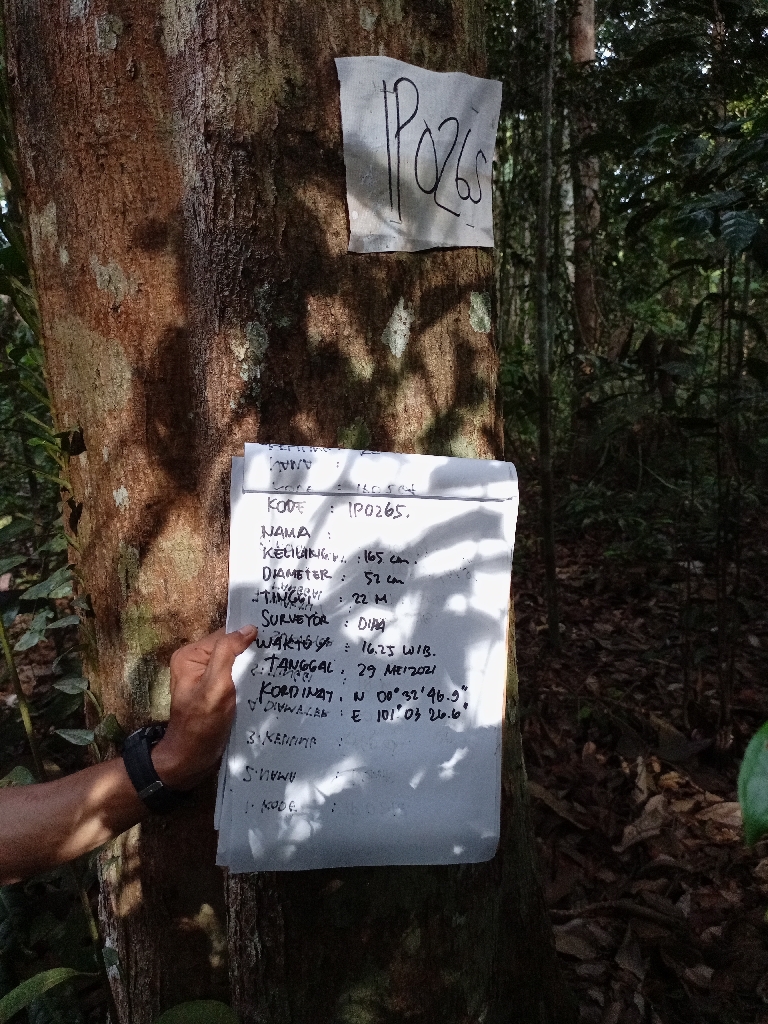 IP0265
KODE : IP0265.
NAMA :
KELILING. : 165 cm.
DIAMETER : 52 cm
TINGGI : 22 M
SURVEYOR : DIPA
WAKTU : 16.25 WIB.
TANGGAL . 29 MEI 2021
KORDINAT. N 00°32'46.9"
: E 101°03 26.6"